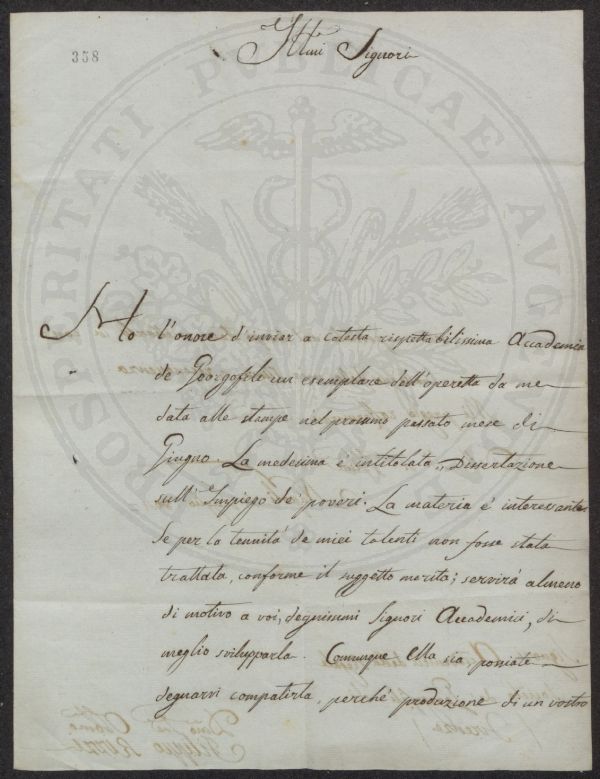 358
Ill.mi Signori
PROSPERITATI PUBLICAE AUG
Ho l'onore d'inviar a cotesta rispettabilissima Accademia
de Georgofili un esemplare dell'operetta da me
data alle stampe nel prossimo passato mese di
Giugno. La medesima è intitolata „ Dissertazione
sull'Impiego de' poveri. La materia è interessante
Se per la tenuità de miei talenti non fosse stata
trattata, conforme il suggetto merita; servirà almeno
di motivo a voi, degnissimi Signori Accademici, di
meglio svilupparla. Comunque Ella sia possiate
degnarvi compatirla, perché produzione di un vostro